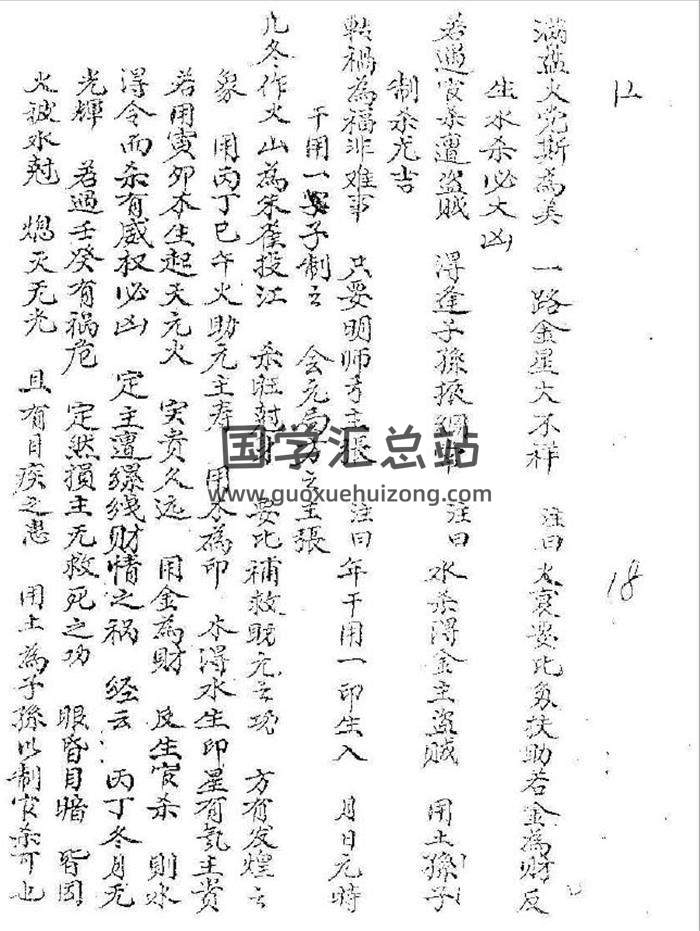 12
18
满盘火党斯為美 一路金星大不祥 注曰火衰要比劦扶助若金為财反
生水杀必大凶
若遇官杀遭盗贼 得逢子孫掀 注曰 水杀得金主盗贼 用土孫子
制杀尤吉
転禍為福非难事 只要明师主張 注曰年干用一印生入 月日元時
干用一子制之 会元局方之主張
凡冬作火山為朱雀投江 杀旺尅财 要比補救財元之功 方有发煌之
象 用丙丁巳午火助元主寿 用木為印 木得水生印星有氣主贵
若用寅卯木生起天元火 实贵久远 用金為财 反生官杀 则水
得令而杀有威权必凶 定主遭缧线财情之祸 经云 丙丁冬月无
光輝 若遇壬癸有祸危 定然損主无救死之功 眼昏目暗 皆因
火被水尅 灭无光 且有目疾之患 用土為子孫以制官杀可也
国学汇总站
www.guoxuehuizong.com